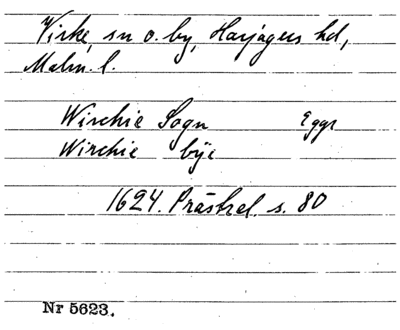 Virke, sn o. by, Harjagers hd,
Malm. l.
Wirchie Sogn Eggs
Wirchie bÿe
1624. Prästrel. s. 80
Nr 5623.